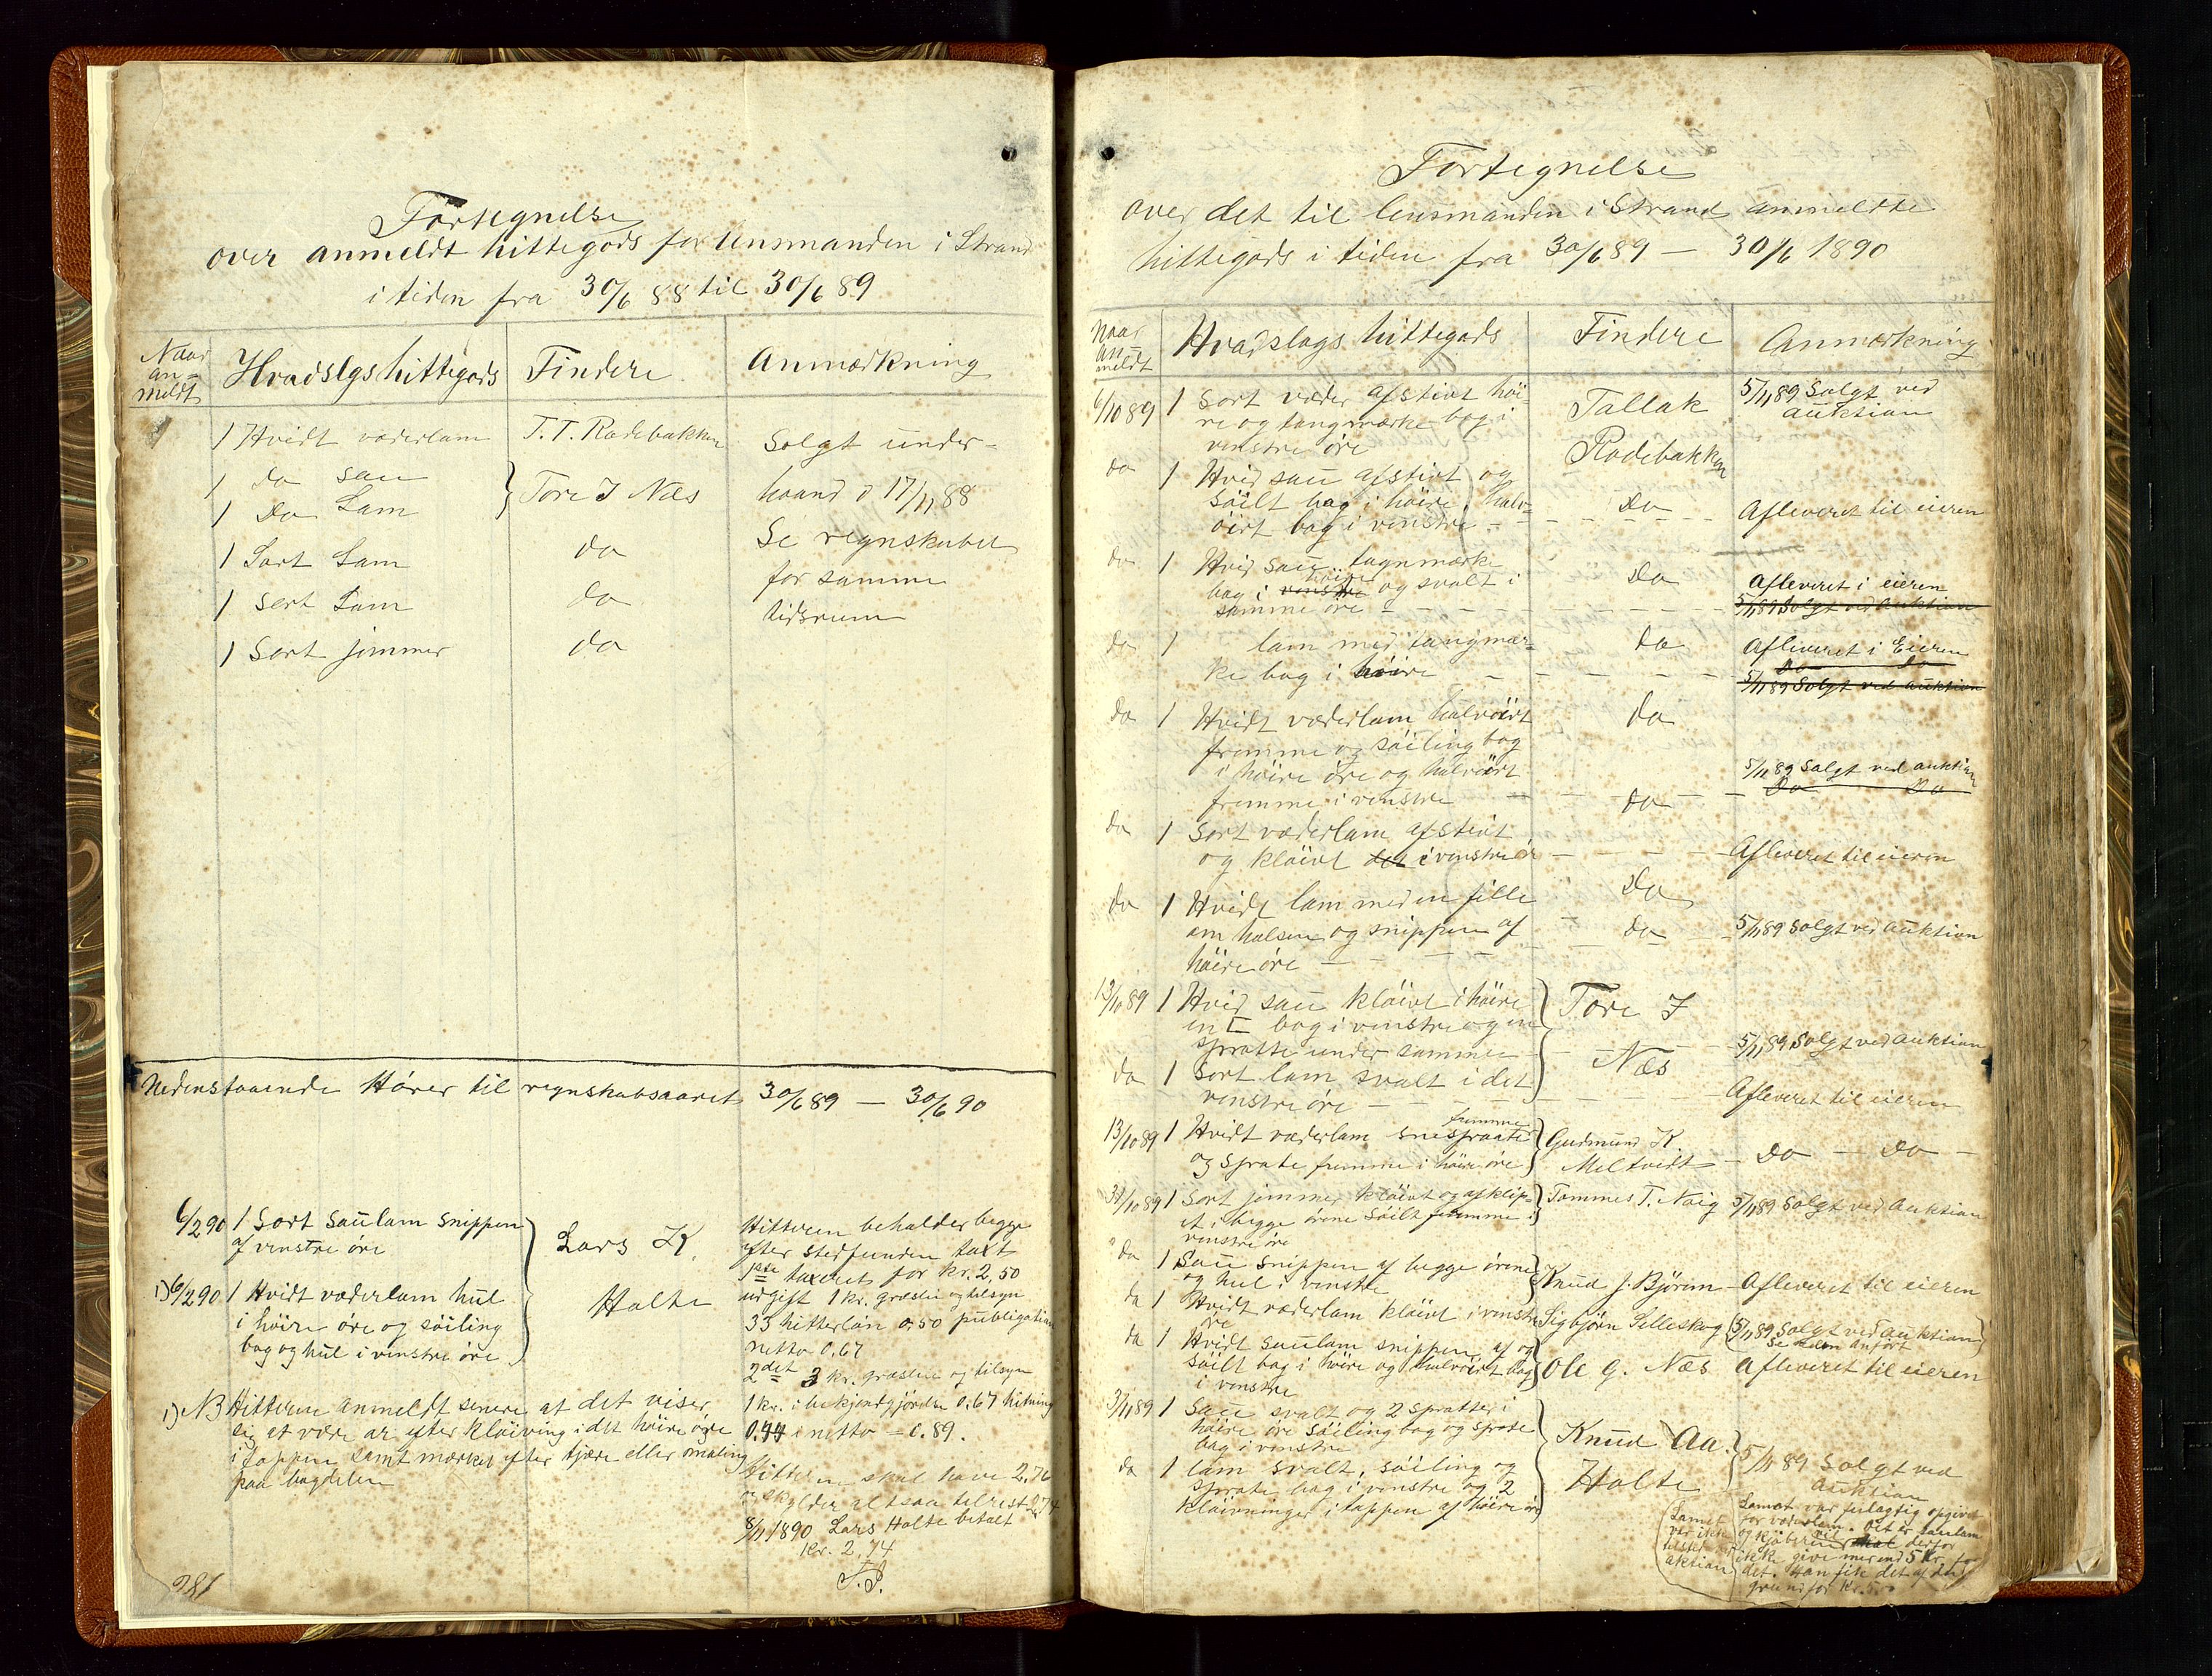 Fortegnelse
over anmeldt hittegods for lensmanden i Strand
i tiden fra 30/6 88 til 30/6 89
Naar an=meldt
Hvadslgs hittegods
Findere
Anmærkning
1 Hvidt væderlam
T. T. Rodebakken
Solgt under-
1 do sau
1 Do Lam
Tore J Næs
haand d 17/11 88
1 Sort Lam
do
Se regnskabet
1 Sort Lam
do
for samme
tidsrum
1 Sort jimmer
do
Nedenstaaende Hører til regnskabsaaret 30/6 89 — 30/6 90
6/2 90 1 Sort saulam snippen
af venstre øre
Lars K.
Holte
1) 6/2 90 1 Hvidt væderlam hul
i høire øre og søiling
bag og hul i venstre øre
Hitteren beholder begge
efter stedfunden taxt
1ste taxerets for kr. 2,50
udgift 1 kr. græsleie og tilsyn
33 hitterløn 0,50 publigation
netto 0.67
2det 3 kr. græsleie og tilsyn
1 kr. i bekjendtgjørelse 0.67 hitning
0.44 netto = 0.89.
1) NB Hitteren anmeldt senere at det viser
sig at være ar efter kløiving i det høire øre
i toppen samt mærket efter tjære eller maling
paa bagdelen
Hitteren skal have 2.76
og skylder altsaa tilrest 2,74
8/11 1890 Lars Holte betalt
kr. 2.74
T.P.
281
Fortegnelse
over det til lensmanden i Strand anmeldte
hittegods i tiden fra 30/6 89 — 30/6 1890
Naar an=meldt
Hvadslags hittegods
Findere
Anmærkning
6/10 89 1 Sort væder afstivt høi-
re og tangmærke bag i
venstre øre
Tallak
Rodebakken
5/11 89 Solgt ved
auktion
do 1 Hvid sau afstivt og
søilt bag i høire, halv=
øirt bag i venstre
Do
Afleveret til eieren
do 1 Hvid sau tagnmærke
bag i venstre høire og svalt i
samme øre
Do
Afleveret i eieren
5/11 89 Solgt ved auktion
do 1 lam med tangmær=
ke bag i høire
Do
Afleveret i Eieren
Do Do
5/11 89 Solgt ved auktion
Do 1 Hvidt væderlam halvøirt
fremme og søiling bag
i høire øre og halvøirt
fremme i venstre
Do
5/11 89 Solgt ved auktion
Do Do
do 1 Sort væderlam afstivt
og kløivt det i venstre ør
Do
Afleveret til eieren
do 1 Hvidt lam med en fille
om halsen og snippen af
høire øre
Do
Do
5/11 89 Solgt ved auktion
13/10 89 1 Hvid sau kløivt i høire
en [ bag i venstre og en
spratte under samme
Tore J
Næs
5/11 89 Solgt ved auktion
do 1 Sort lam svalt i det
venstre øre
Afleveret til eieren
13/10 89 1 Hvidt væderlam snespraate fremme
og sprate fremme i høire øre
Gudmund K
Meltveidt
Do Do
31/10 89 1 Sort jimmer kløivt og afklip-
et i begge ørene søilt fremme i
venstre øre
Tommes T. Naig
5/11 89 Solgt ved Auktion
do 1 Sau snippen af begge ørene
og hul i venstre
Knud J. Bjørem
Afleveret til eieren
do 1 Hvidt væderlam kløivt i venstre
øre
Sigbjørn Selleskog
5/11 89 Solgt ved auktion
anført
do 1 Hvidt saulam snippen af og
søilt bag i høire og halvøirt bag
i venstre
Ole G. Næs
Afleveret til eieren
3/11 89 1 Sau svalt og 2 spratter i
høire øre søiling bag og sprate
bag i venstre
Knud Aa.
Holte
do 1 lam svalt, søiling og
sprate bag i venstre og 2
kløivninger i toppen af høire øre
5/11 89 Solgt ved
Auktion
Lamet
var ikke
auktion
Lamet var feilagtig opgivet
for væderlam. Det er saulam
og kjøberen skal vil derfor
ikke give mer end 5 kr. for
det. Han fik det af den
grund for kr. 5.